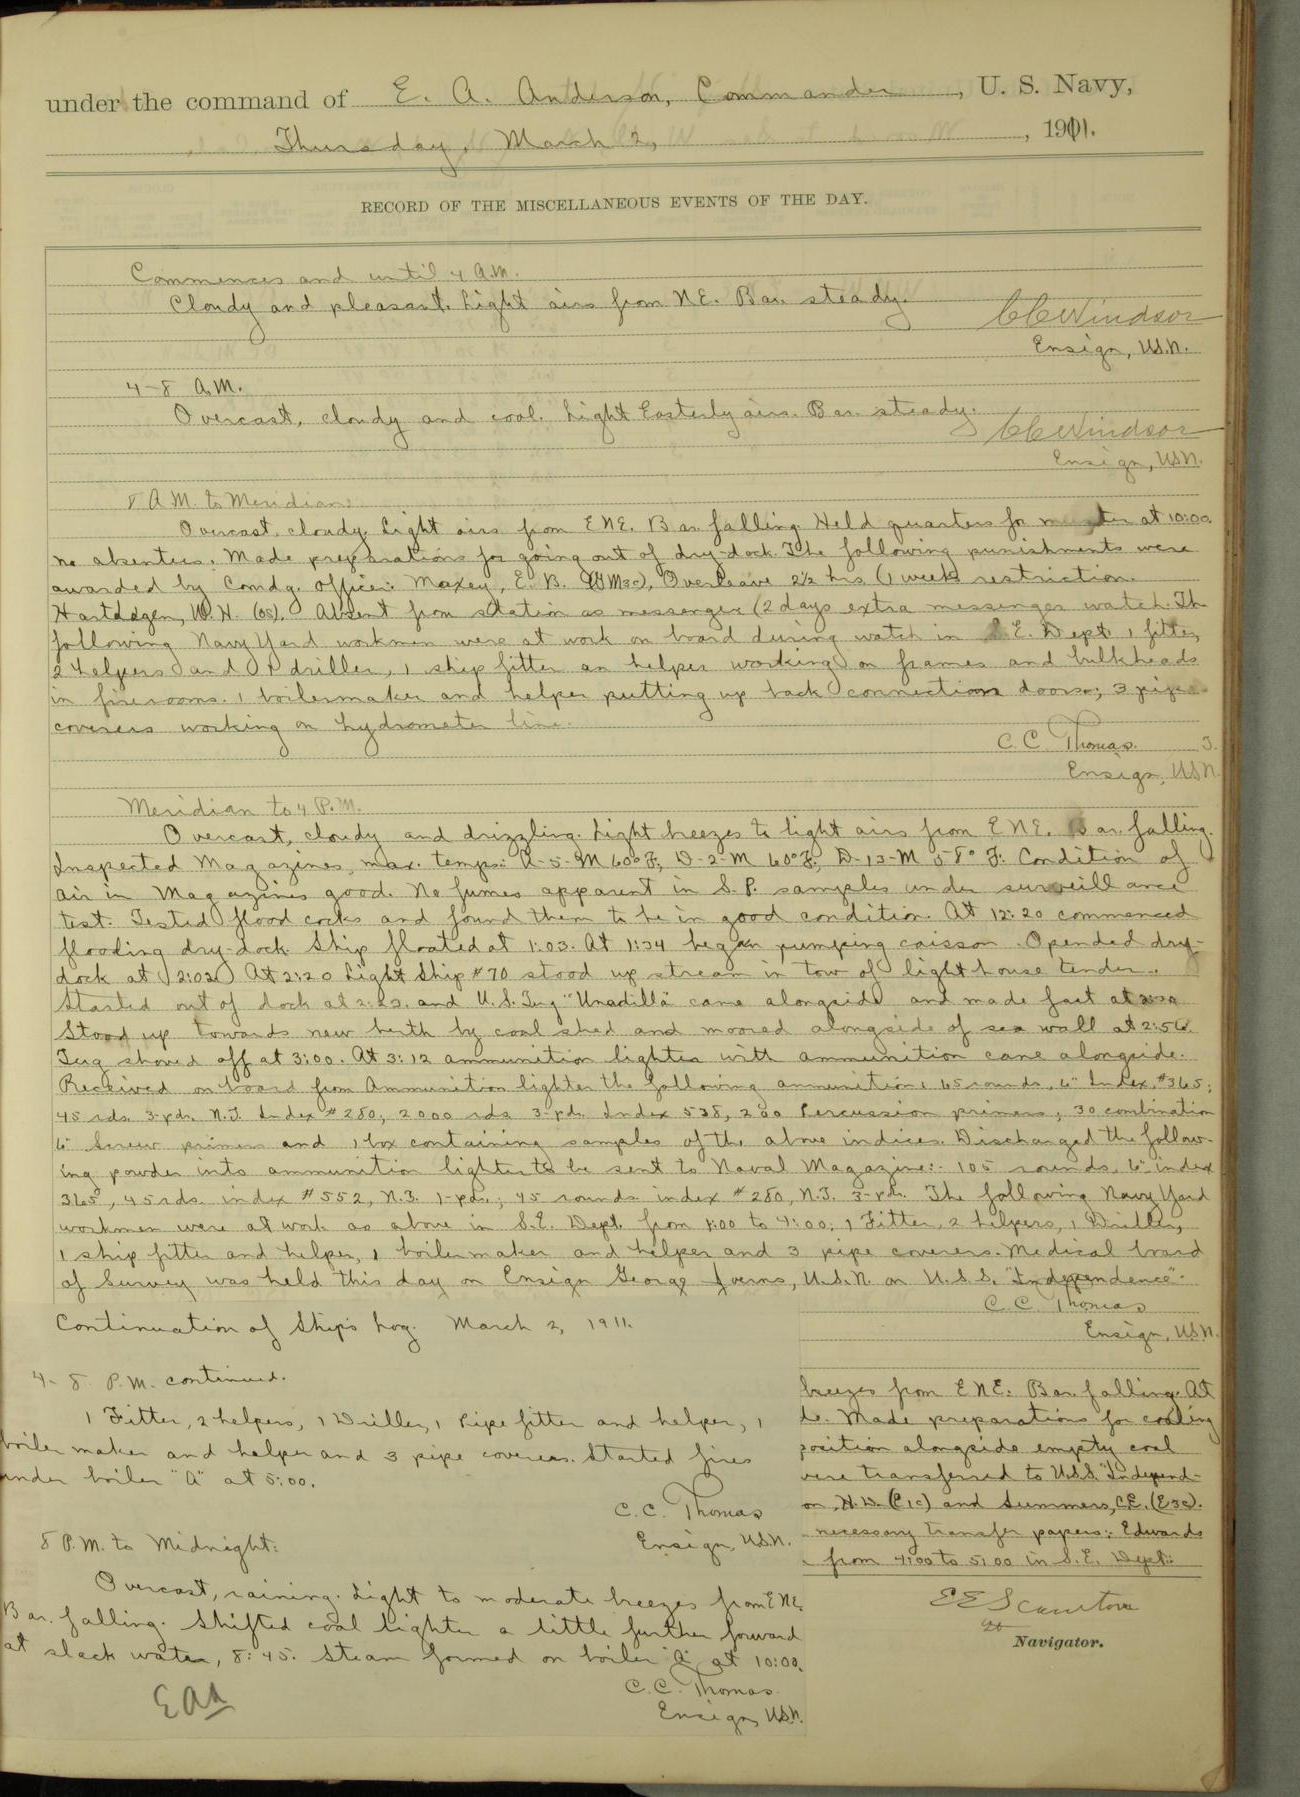 under the command of E. A. Anderson, Commander, U. S. Navy,
Thursday, March 2, 1911.
RECORD OF THE MISCELLANEOUS EVENTS OF THE DAY.
Commences and until 4 A.M.
Cloudy and pleasant. Light airs from NE. Bar. steady.
CCWindsor
Ensign, U.S.N.
4-8 A.M.
Overcast, cloudy and cool. Light Easterly airs. Bar. steady.
CCWindsor
Ensign, USN.
8 A.M. to Meridian:
Overcast, cloudy. Light airs from ENE. Bar. falling. Held quarters for muster at 10:00.
no absentees. Made preparations for going out of dry-dock. The following punishments were
awarded by Comdg. Officer: Maxey, E. B. (GM3c), Overleave 2½ hrs (1 week restriction.
W. H. (OS). Absent from station as messenger (2 days extra messenger watch. Th
following Navy Yard workmen were at work on board during watch in S.E. Dept. 1 fitter,
2 helpers and 1 driller, 1 ship fitter an helper working on frames and bulkheads
in firerooms. 1 boilermaker and helper putting up back connection doors; 3 pipe
coverers working on hydrometer line.
C. C. Thomas
Ensign, USN.
Meridian to 4 P.M.
Overcast, cloudy and drizzling. Light breezes to light airs from ENE. Bar. falling.
Inspected Magazines, max. temps: A-5-M 60°F, D-2-M 60°F, D-13-M 58°F. Condition of
air in Magazines good. No fumes apparent in S.P. samples under surveillance
test. Tested flood cocks and found them to be in good condition. At 12:20 commenced
flooding dry-dock. Ship floated at 1:03. At 1:34 began pumping caisson. Opended dry-
dock at 2:02. At 2:20 Light Ship #70 stood up stream in tow of light house tender.
Started out of dock at 2:22. and U.S. Tug "Unadilla" came alongside and made fast at
Stood up towards new berth by coal shed and moored alongside of sea wall at 2:56.
Tug shoved off at 3:00. At 3:12 ammunition lighter with ammunition came alongside.
Received on board from Ammunition lighter the following ammunition: 65 rounds, 6" Index, #365;
45 rds. 3-pdr. N.T. Index #280; 2000 rds 3-pdr. Index 538, 200 Percussion primers; 30 combination
6" Screw primers and 1 box containing samples of the above indices. Discharged the follow-
ing powder into ammunition lighter to be sent to Naval Magazine: 105 rounds, 6" index
365, 45 rds. index #552, N.T. 1-pdr.; 45 rounds index #280, N.T. 3-pdr. The following Navy Yard
workmen were at work as above in S.E. Dept. from 1:00 to 4:00; 1 Fitter, 2 helpers, 1 Driller,
1 ship fitter and helper, 1 boiler maker and helper and 3 pipe coverers. Medical board
of Survey was held this day on Ensign George Joerns, U.S.N. on U.S.S. "Independence".
C. C. Thomas
Ensign, U.S.N.
Continuation of Ship's Log. March 2, 1911.
4-8 P.M. continued.
1 Fitter, 2 helpers, 1 Driller, 1 Pipe fitter and helper, 1
boiler maker and helper and 3 pipe coverers. Started fires
under boiler "A" at 5:00.
C. C. Thomas
Ensign, U.S.N.
8 P.M. to Midnight:
Overcast, raining. Light to moderate breezes from ENE.
Bar. falling. Shifted coal lighter a little further forward
at slack water, 8:45. Steam formed on boiler "A" at 10:00.
C. C. Thomas
Ensign, U.S.N.
EAA
breezes from ENE. Bar. falling. At
Made preparations for coaling
position alongside empty coal
were transferred to U.S.S. "Independ-
on, H. D. (C1c) and Summers, C.E. (E3c).
necessary transfer papers: Edwards
from 4:00 to 5:00 in S.E. Dept:
Navigator.